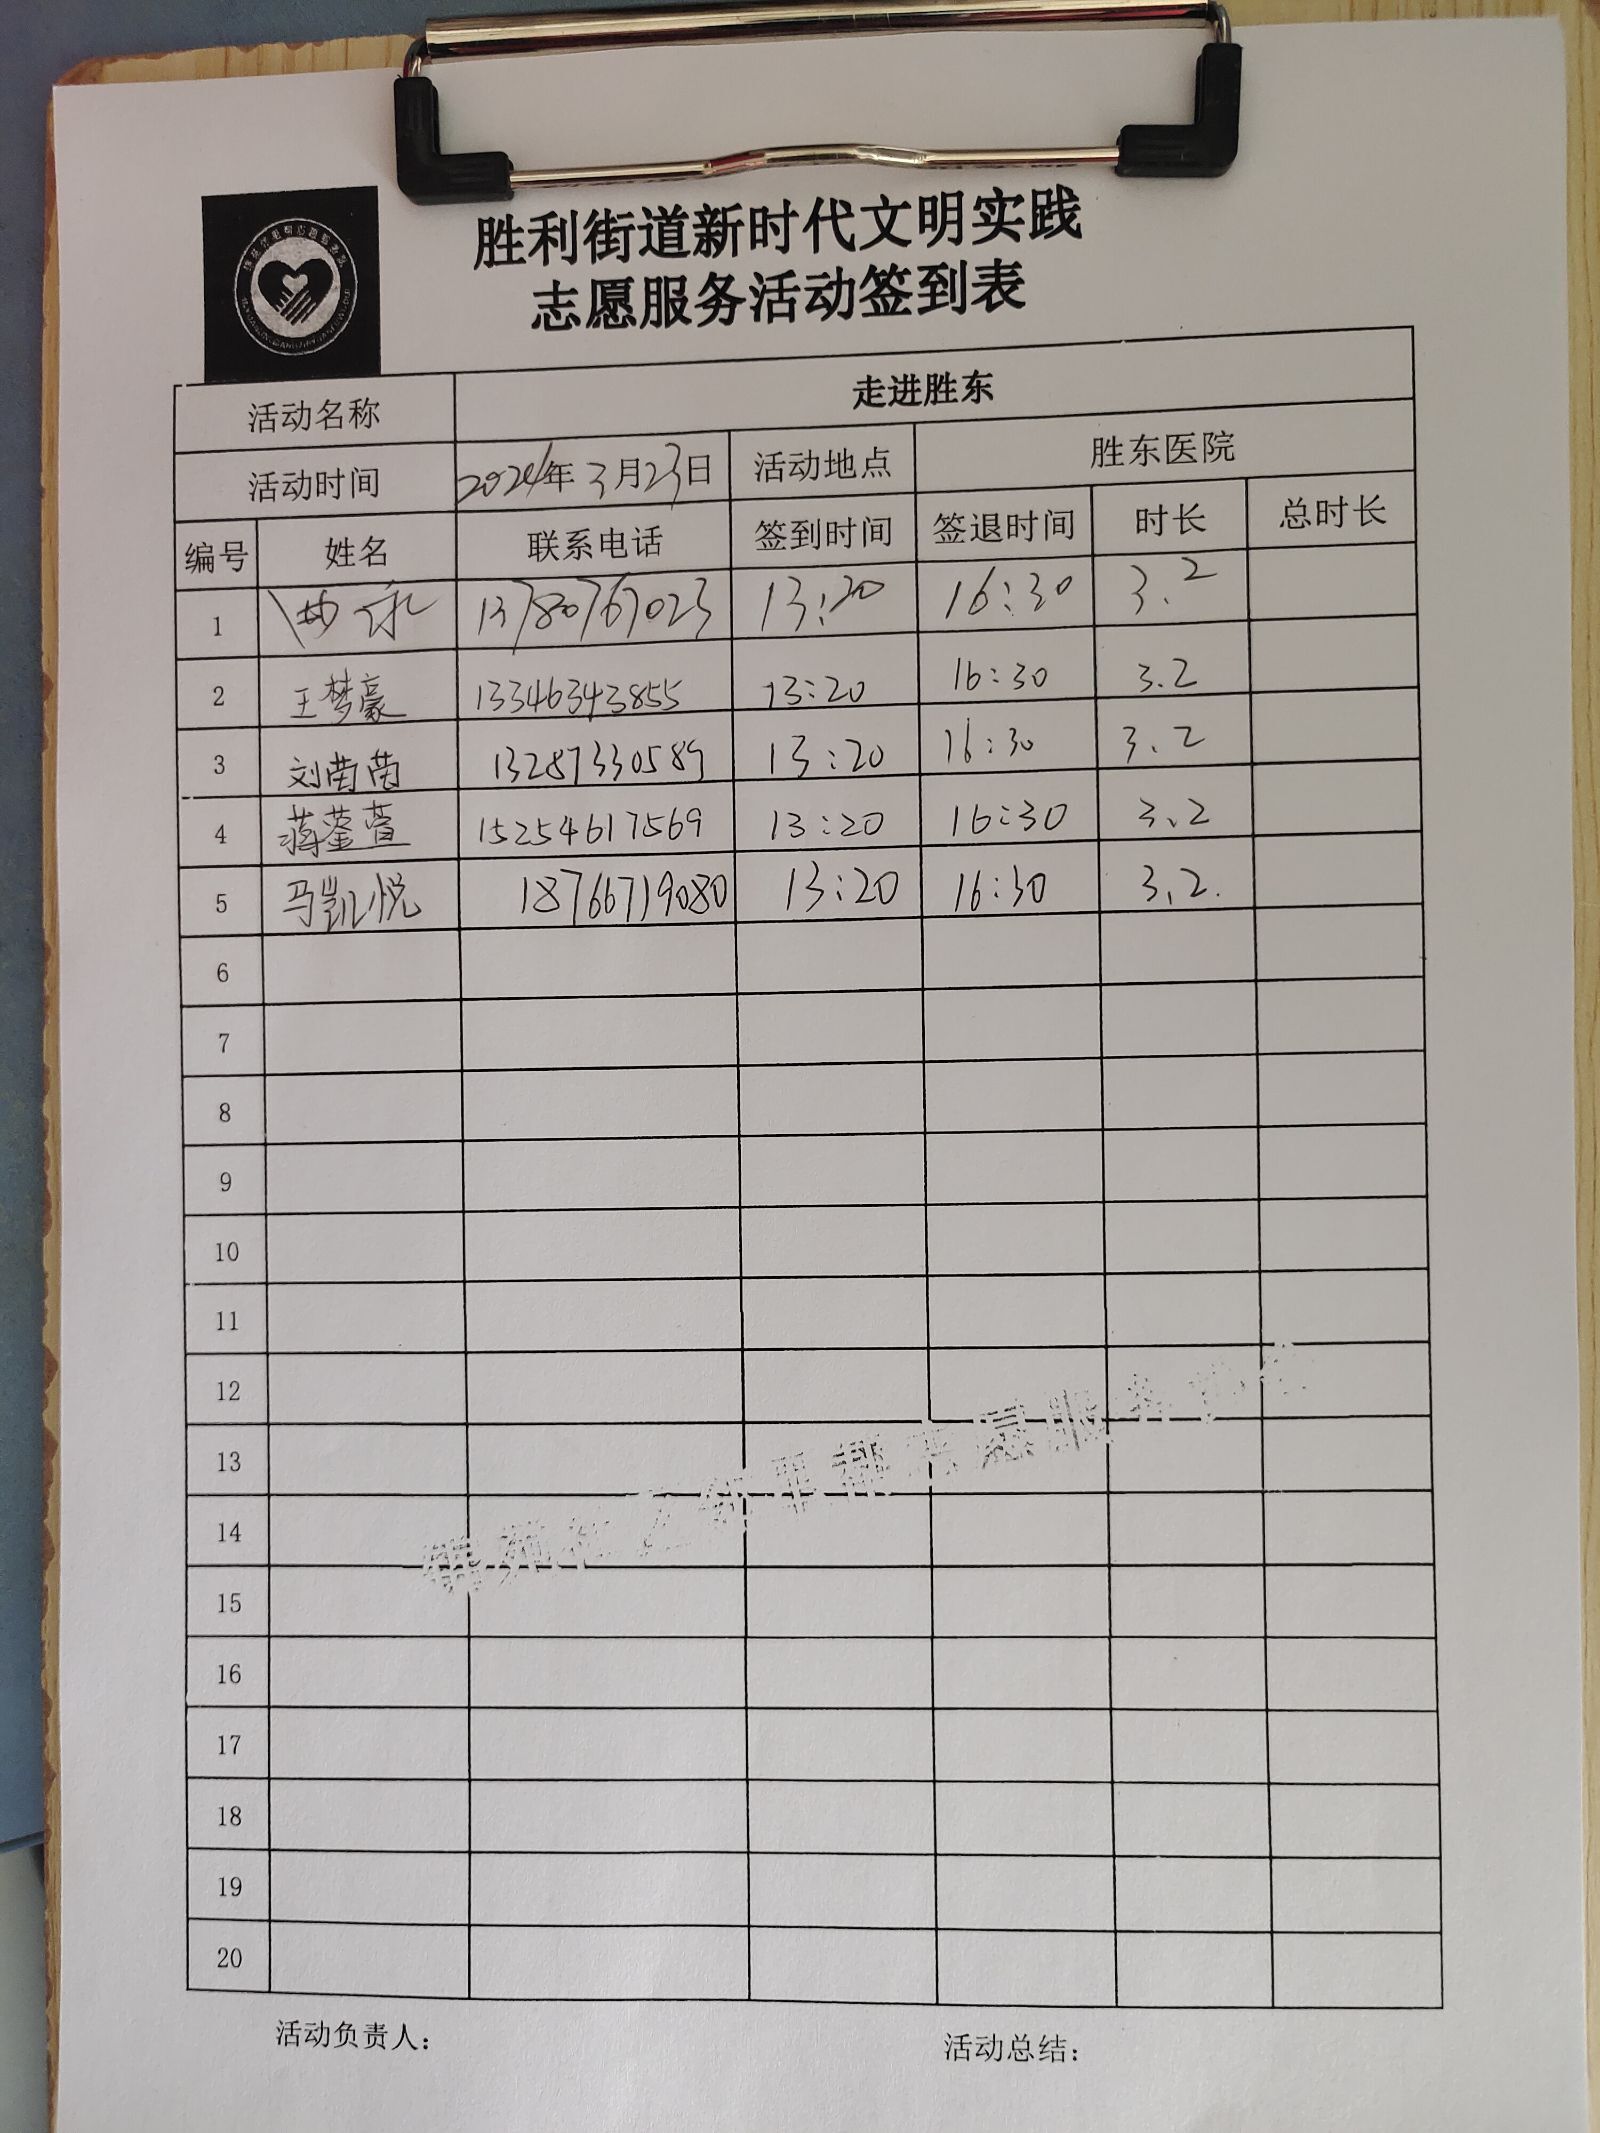 胜利街道新时代文明实践
志愿服务活动签到表
活动名称 走进胜东
活动时间 2024年3月23日 活动地点 胜东医院
编号 姓名 联系电话 签到时间 签退时间 时长 总时长
1 13780767023 13:20 16:30 3.2
2 王梦豪 13346343855 13:20 16:30 3.2
3 刘茵茵 13287330589 13:20 16:30 3.2
4 蒋蓥萱 15254617569 13:20 16:30 3.2
5 马凯悦 18766719080 13:20 16:30 3.2.
6
7
8
9
10
11
12
13
14
15
16
17
18
19
20
活动负责人： 活动总结：